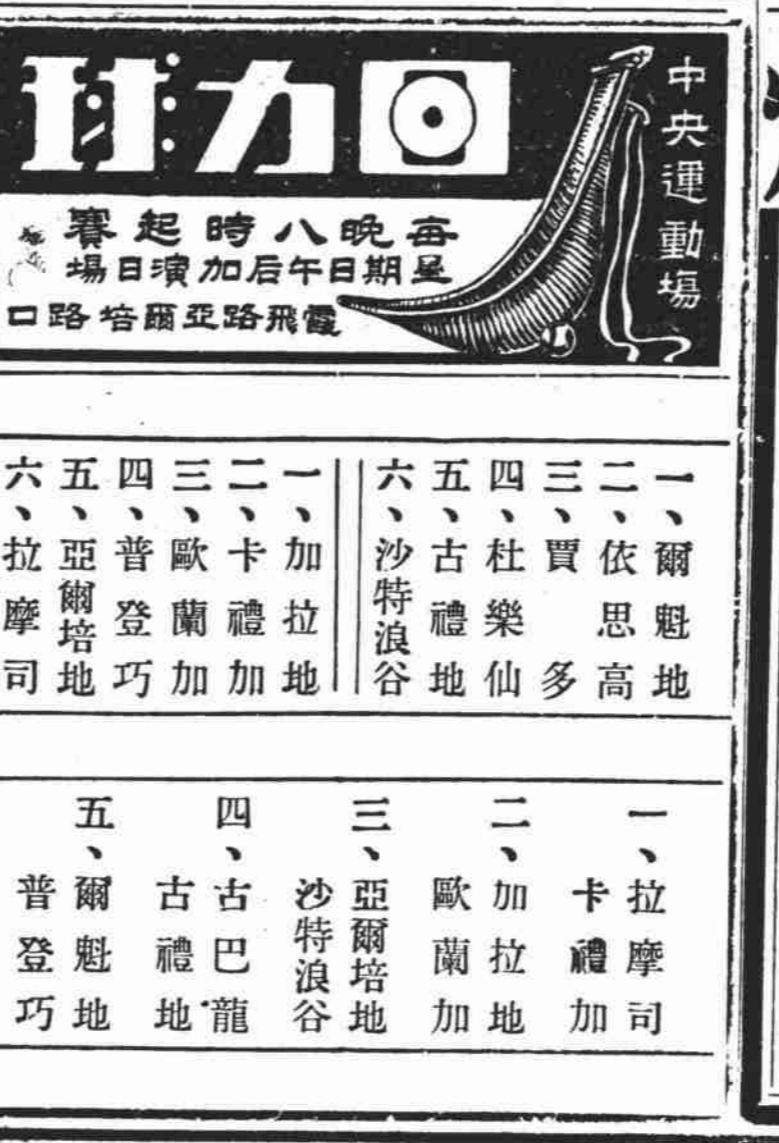 中央運動場
回力球
每晚八時起賽
星期日午后加演日場
霞飛路亞爾培路口
一、爾魁地
二、依思高
三、賈多
四、杜樂仙
五、古禮地
六、沙特浪谷
一、加拉地
二、卡禮加
三、歐蘭加
四、普登巧
五、亞爾培地
六、拉摩司
一、拉摩司
卡禮加
二、加拉地
歐蘭加
三、亞爾培地
沙特浪谷
四、古巴龍
古禮地
五、爾魁地
普登巧